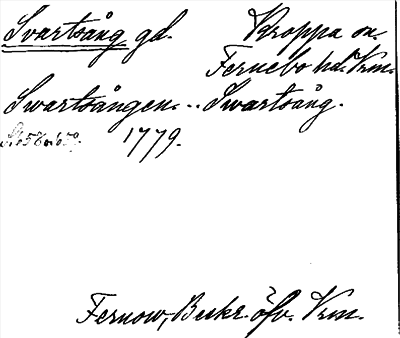 Svartsång gd. Kroppa sn.
Fernebo hd. Vrm.
Swartsången. .. Swartsång.
1779.
Fernow, Beskr. öfv. Vrm.